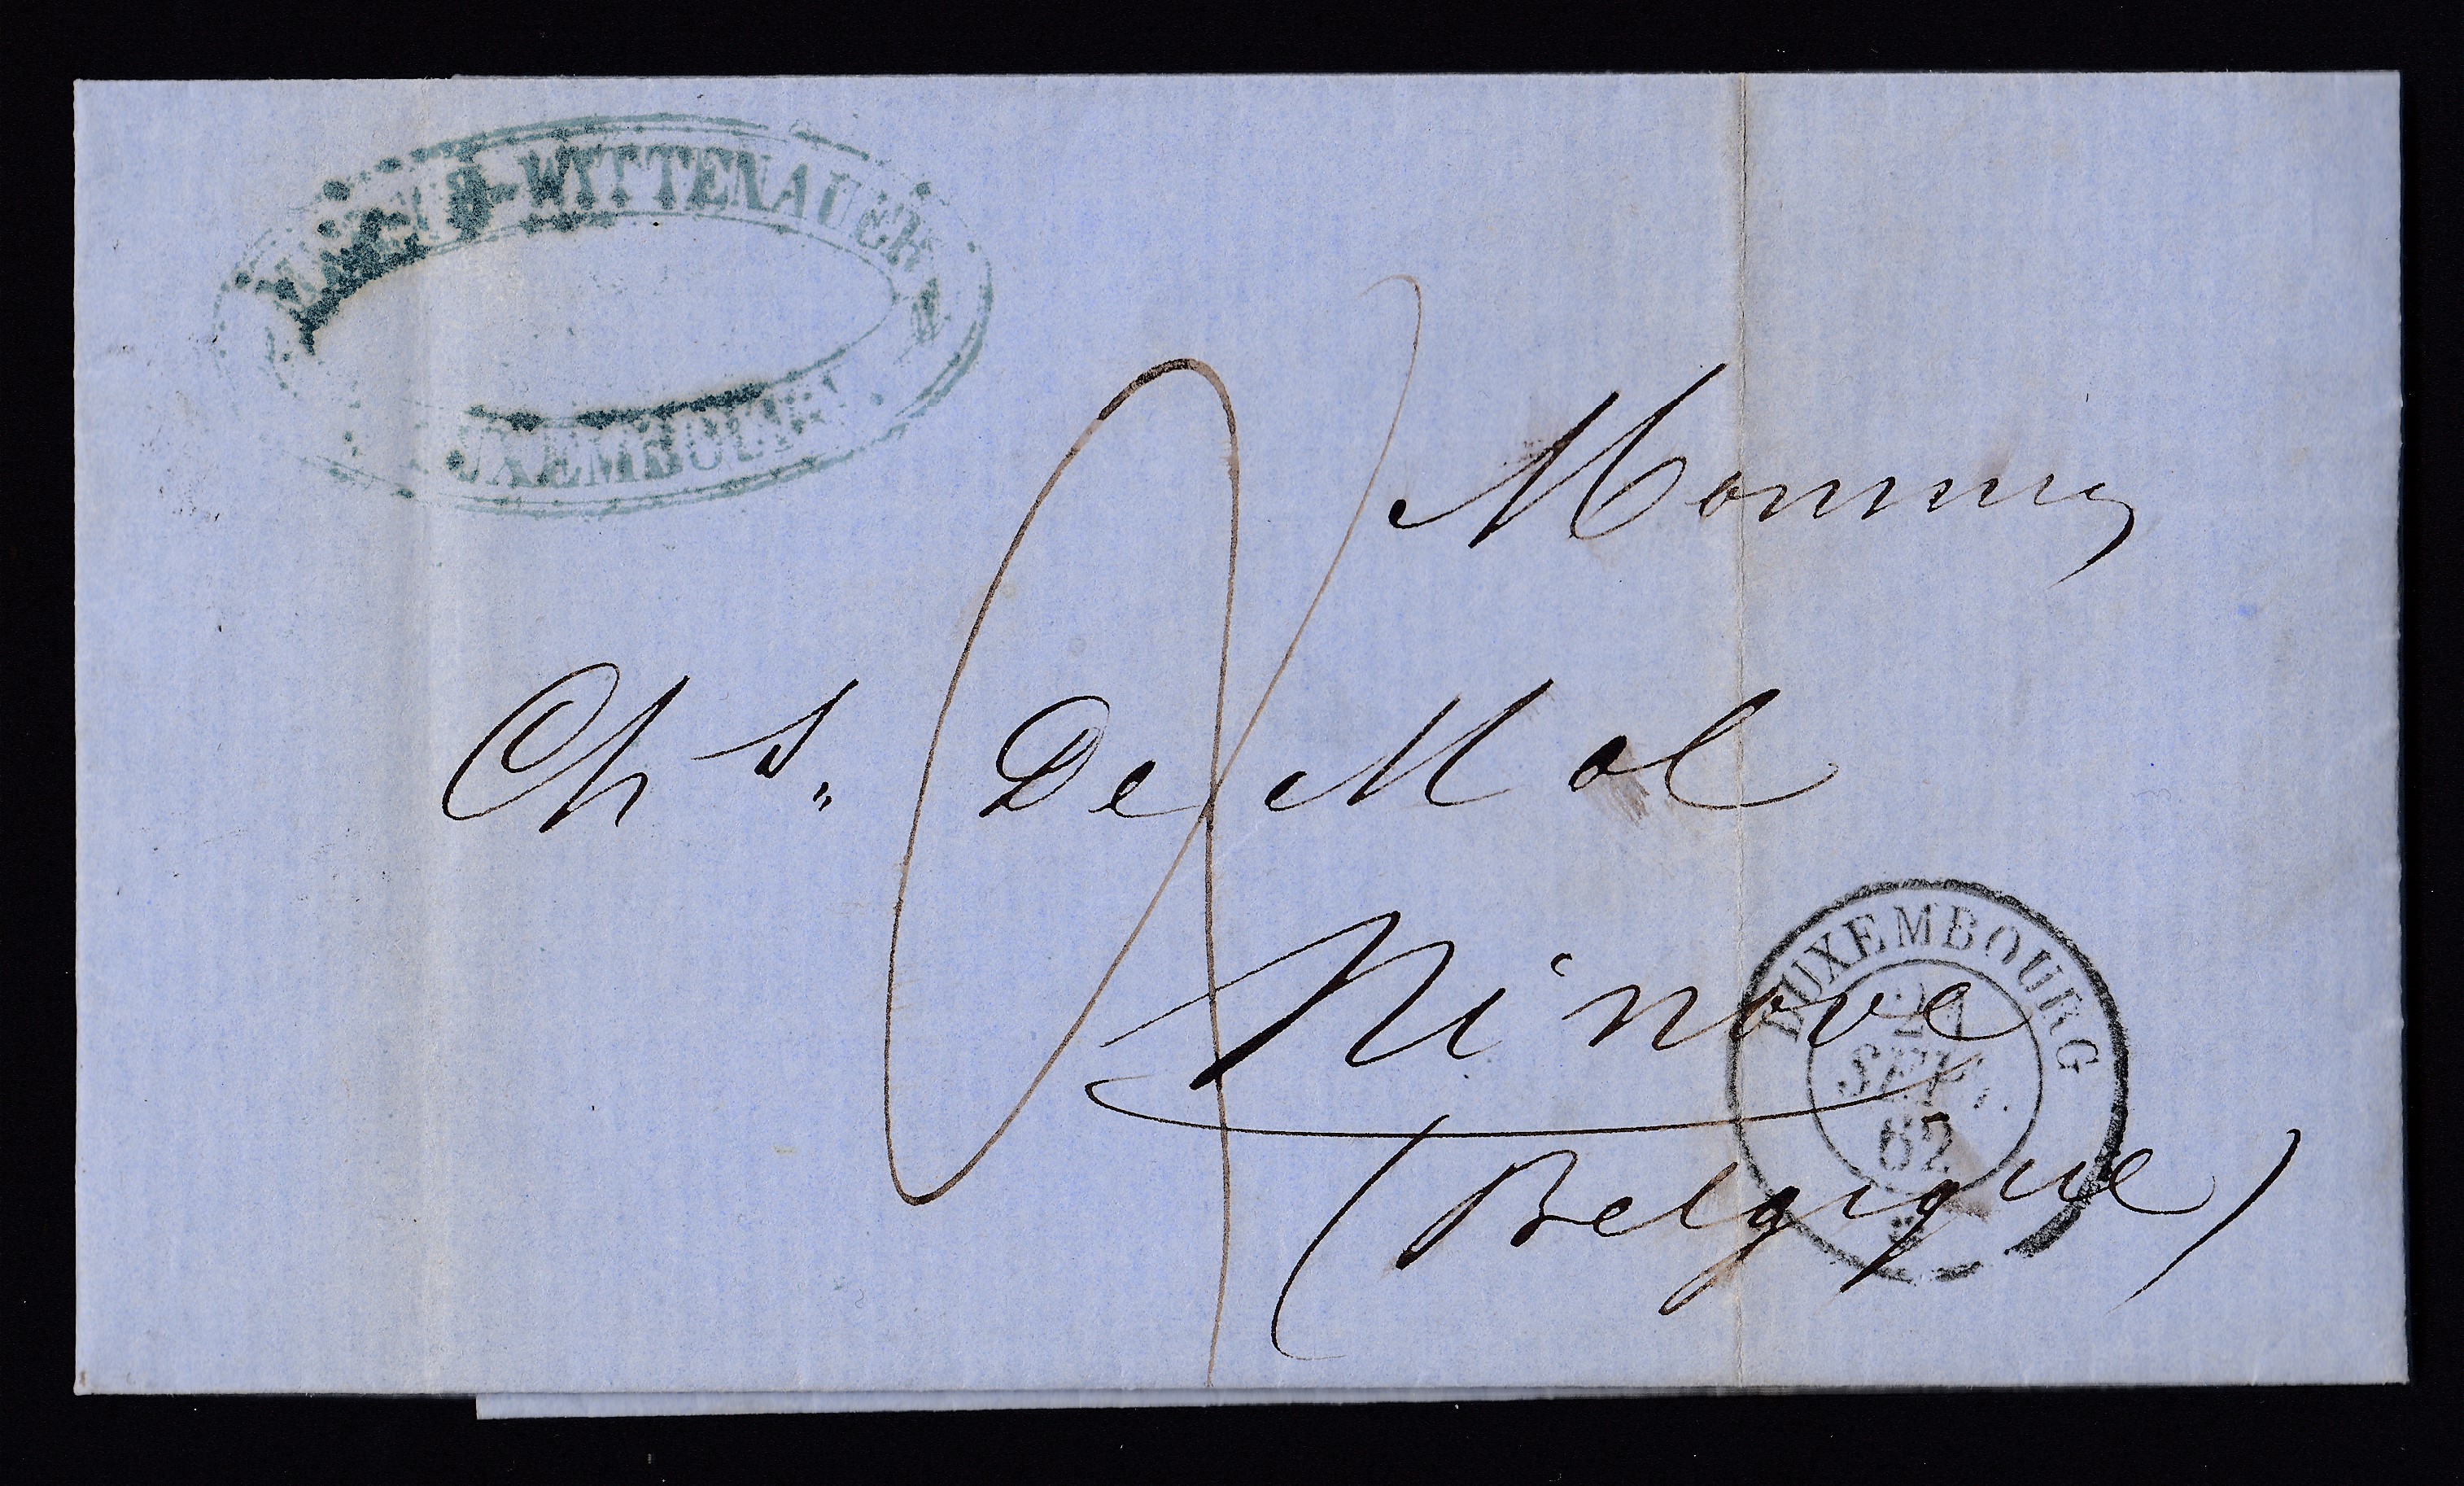 WITTENAUER
LUXEMBOURG
Monsieur
Chs. De Mol
Ninove
(Belgique)
LUXEMBOURG
SEPT.
62